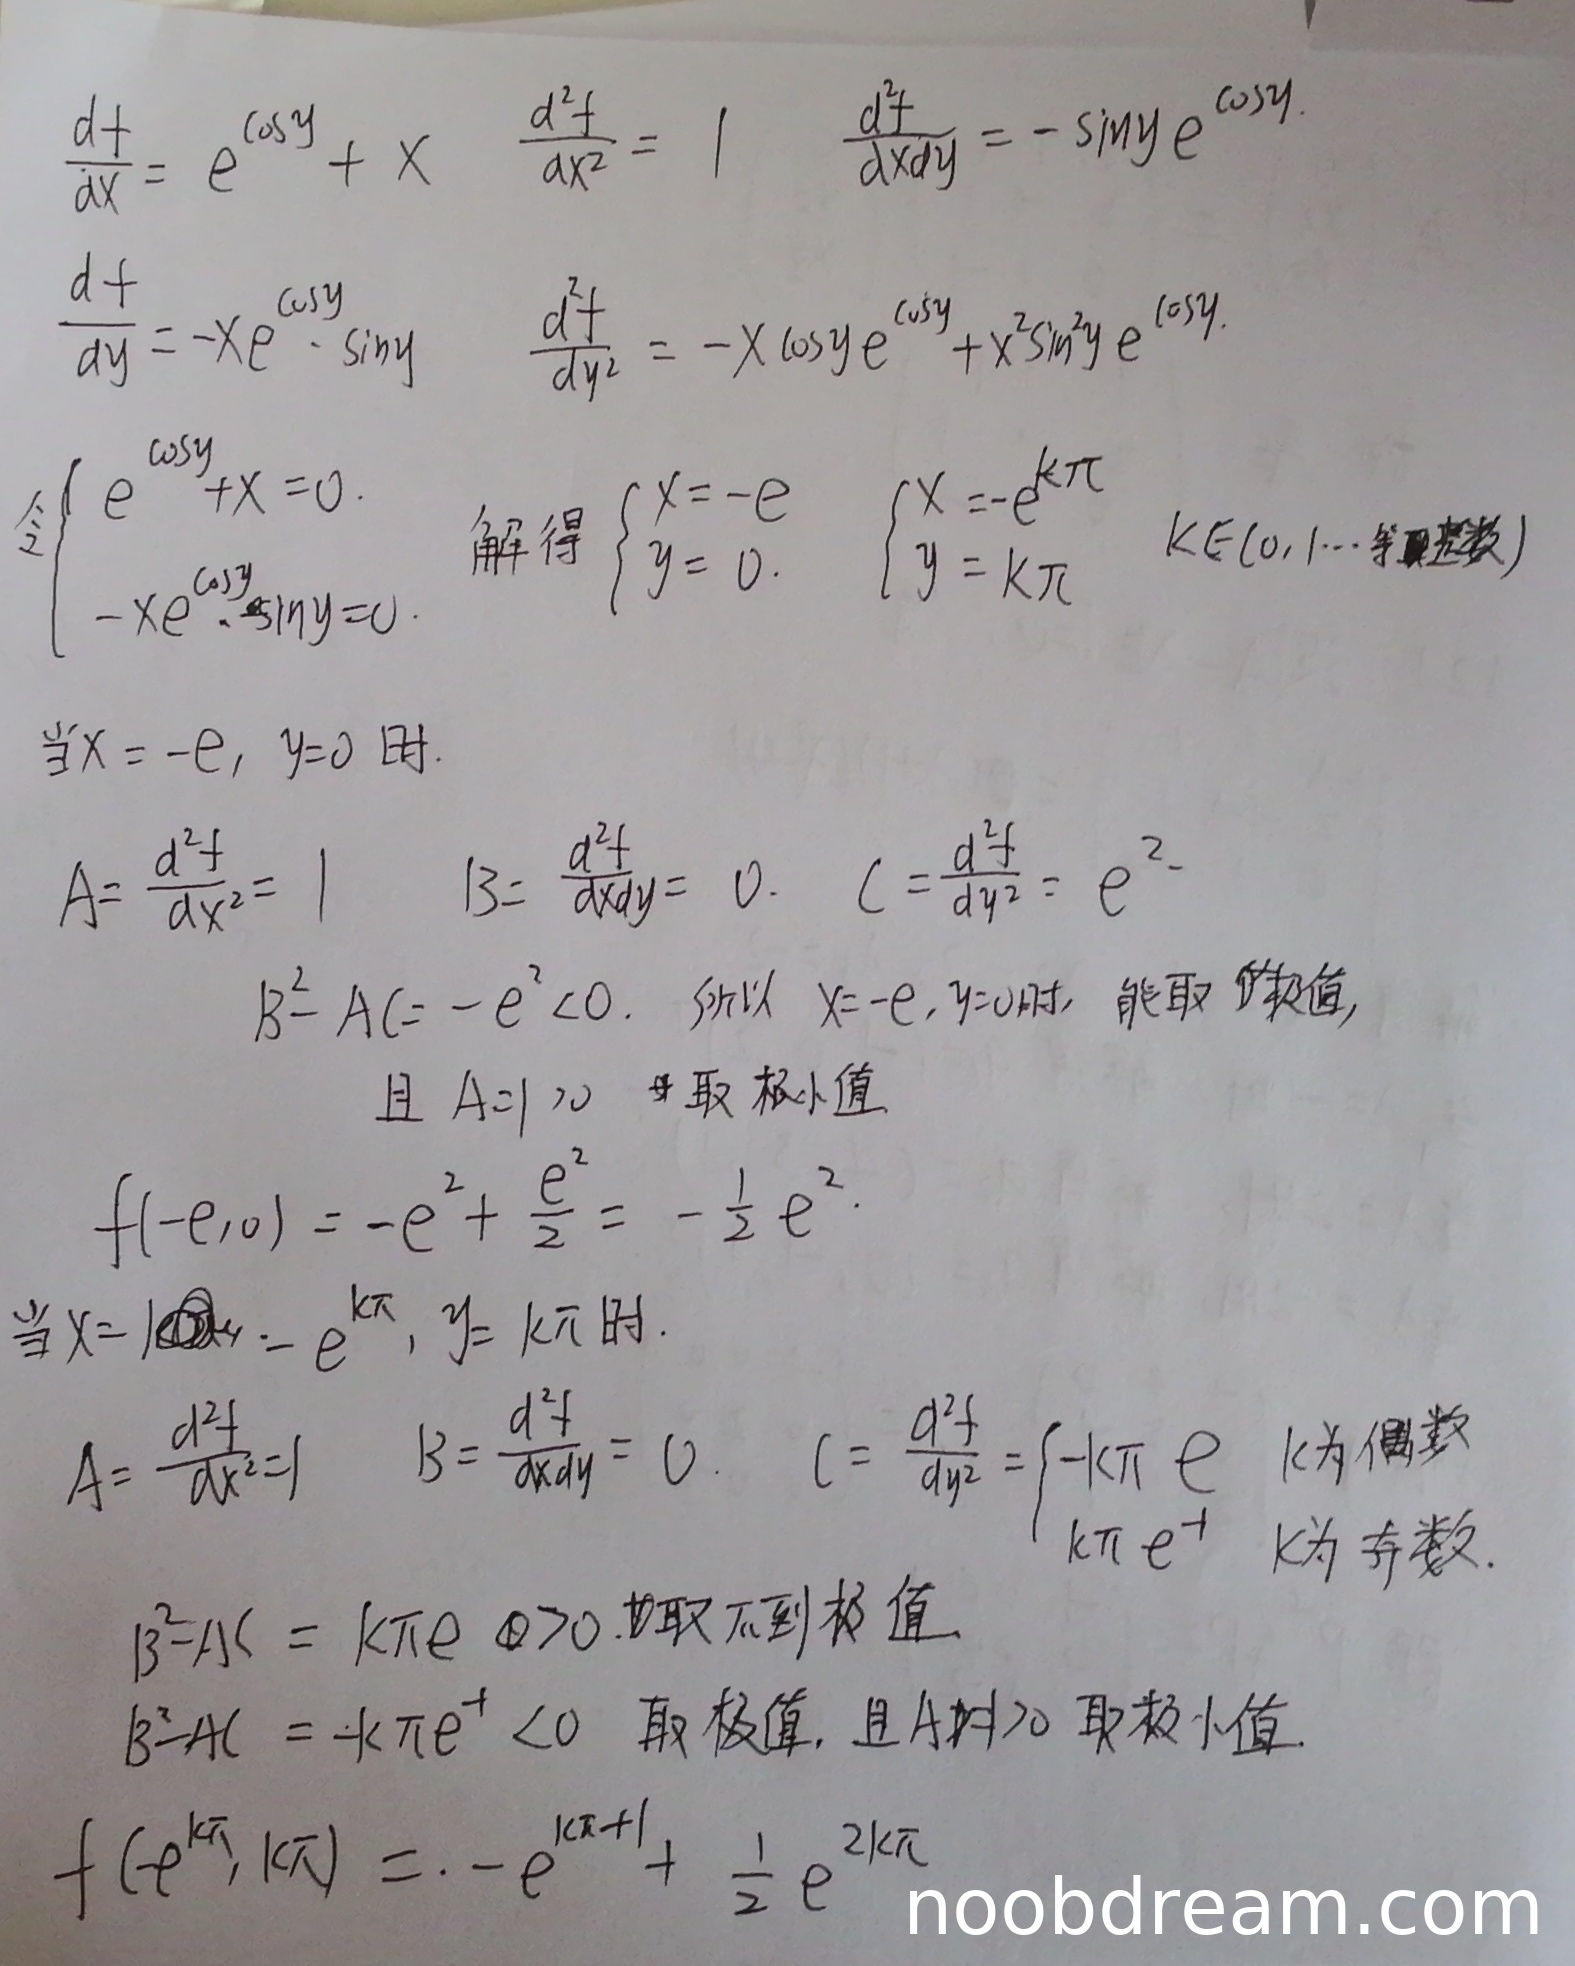 df/dx = e^cosy + x   d²f/dx² = 1   d²f/dxdy = -siny e^cosy.
df/dy = -xe^cosy · siny   d²f/dy² = -x cosy e^cosy + x²sin²y e^cosy.
令 { e^cosy + x = 0.   -xe^cosy · siny = 0.   解得 { x = -e   y = 0.   { x = -e^kπ   y = kπ   k∈(0,1…等整数)
当x = -e, y=0 时.
A = d²f/dx² = 1   B = d²f/dxdy = 0.   C = d²f/dy² = e².
B²-AC = -e² < 0. 所以 x=-e, y=0时, 能取极值,
且 A=1>0 取极小值
f(-e,0) = -e² + e²/2 = -1/2 e².
当x= -e^kπ, y= kπ时.
A = d²f/dx² = 1   B = d²f/dxdy = 0.   C = d²f/dy² = { -kπ e   k为偶数
kπ e^-1   k为奇数.
B²-AC = kπe >0. 取不到极值
B²-AC = -kπe^-1 <0 取极值, 且A=1>0 取极小值.
f(-e^kπ, kπ) = -e^kπ+1 + 1/2 e^2kπ
noobdream.com